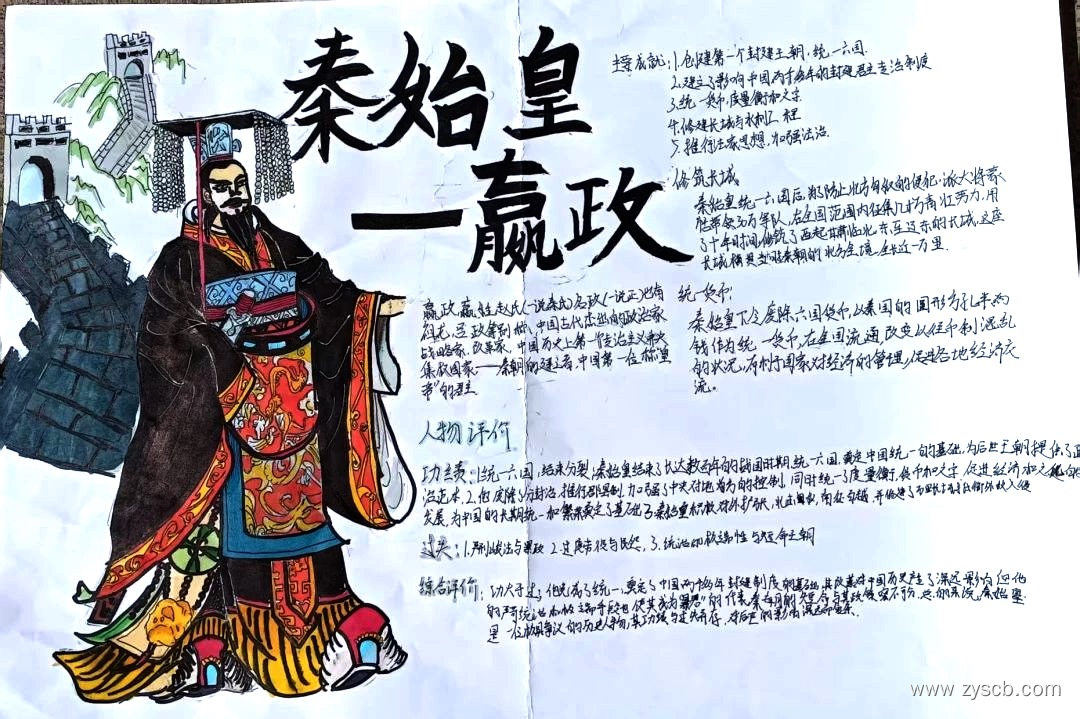 秦始皇
—嬴政
主要成就:1.创建第一个封建王朝,统一六国.
2.建立了影响中国两千多年的封建君主专治制度
3.统一货币,度量衡和文字
4.修建长城与水利工程
5.推行法家思想,加强法治.
修筑长城
秦始皇统一六国后,为了防止北方匈奴的侵犯,派大将蒙
恬带领30万军队,在全国范围内征集几十万青壮劳力,用
了十年时间,修筑了西起甘肃临洮,东至辽东的长城,这座
长城横贯当时秦朝的北方全境,全长近一万里.
统一货币:
秦始皇下令废除六国货币,以秦国的圆形方孔半两
钱作为统一货币,在全国流通,改变以往币制混乱
的状况,有利于国家对经济的管理,促进各地经济交
流。
嬴政,嬴姓,赵氏(一说秦氏)名政(一说正)也有
祖龙,吕政等别称,中国古代杰出的政治家
战略家,改革家,中国历史上第一个专治主义中央
集权国家——秦朝的建立者,中国第一位称"皇
帝"的君主
人物评价
功绩:1统一六国,结束分裂,秦始皇结束了长达数百年的战国时期,统一六国,奠定中国统一的基础,为后世王朝提供了政
治范本.2.他废除了分封治,推行郡县制,加强了中央对地方的控制,同时统一了度量衡,货币和文字,促进经济和文化的
发展,为中国的长期统一和繁荣奠定了基础
过失:1.严刑峻法与暴政 2.过度劳役与民怨,3.统治的极端性与短命王朝
综合评价:功大于过,他完成了统一,奠定了中国两千多年封建制度的基础,其改革对中国历史产生了深远影响,但他
的严苛统治和极端手段也使其成为"暴君"的代表,秦王朝的短命与其政策密不可分,总的来说,秦始皇
是一位极具争议的历史人物,其功绩与过失并存,对后世的影响深远而复杂.
www.zyscb.com